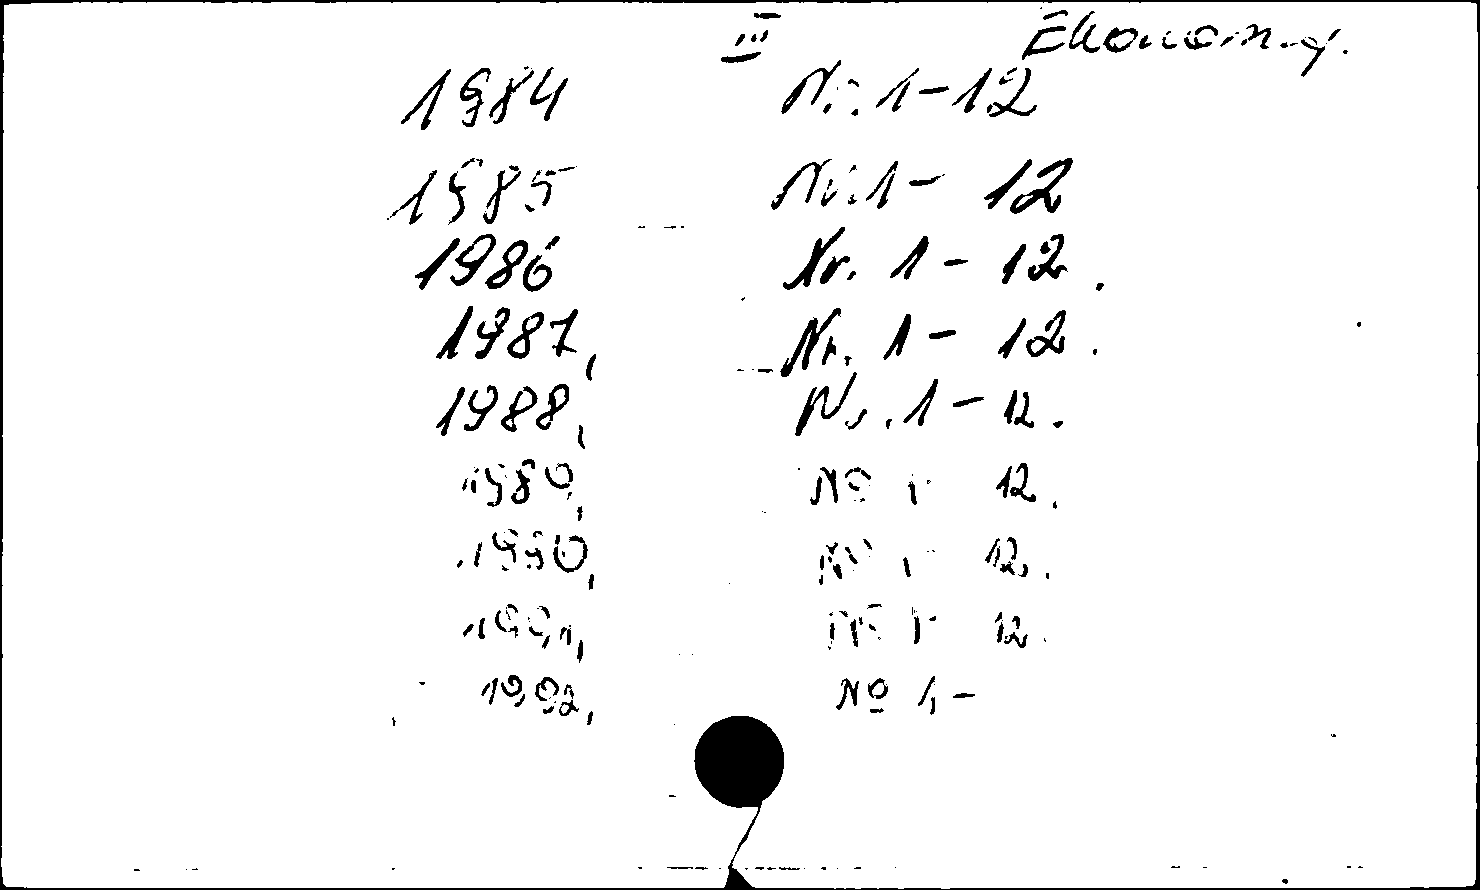 III Економ.
1984 Nr. 1-12
1985 Nr. 1- 12
1986 Nr. 1- 12.
1987, Nr. 1- 12.
1988, Nr. 1- 12.
1989, № 1- 12.
1990, № 1- 12.
1991, № 1- 12.
1992, № 1-